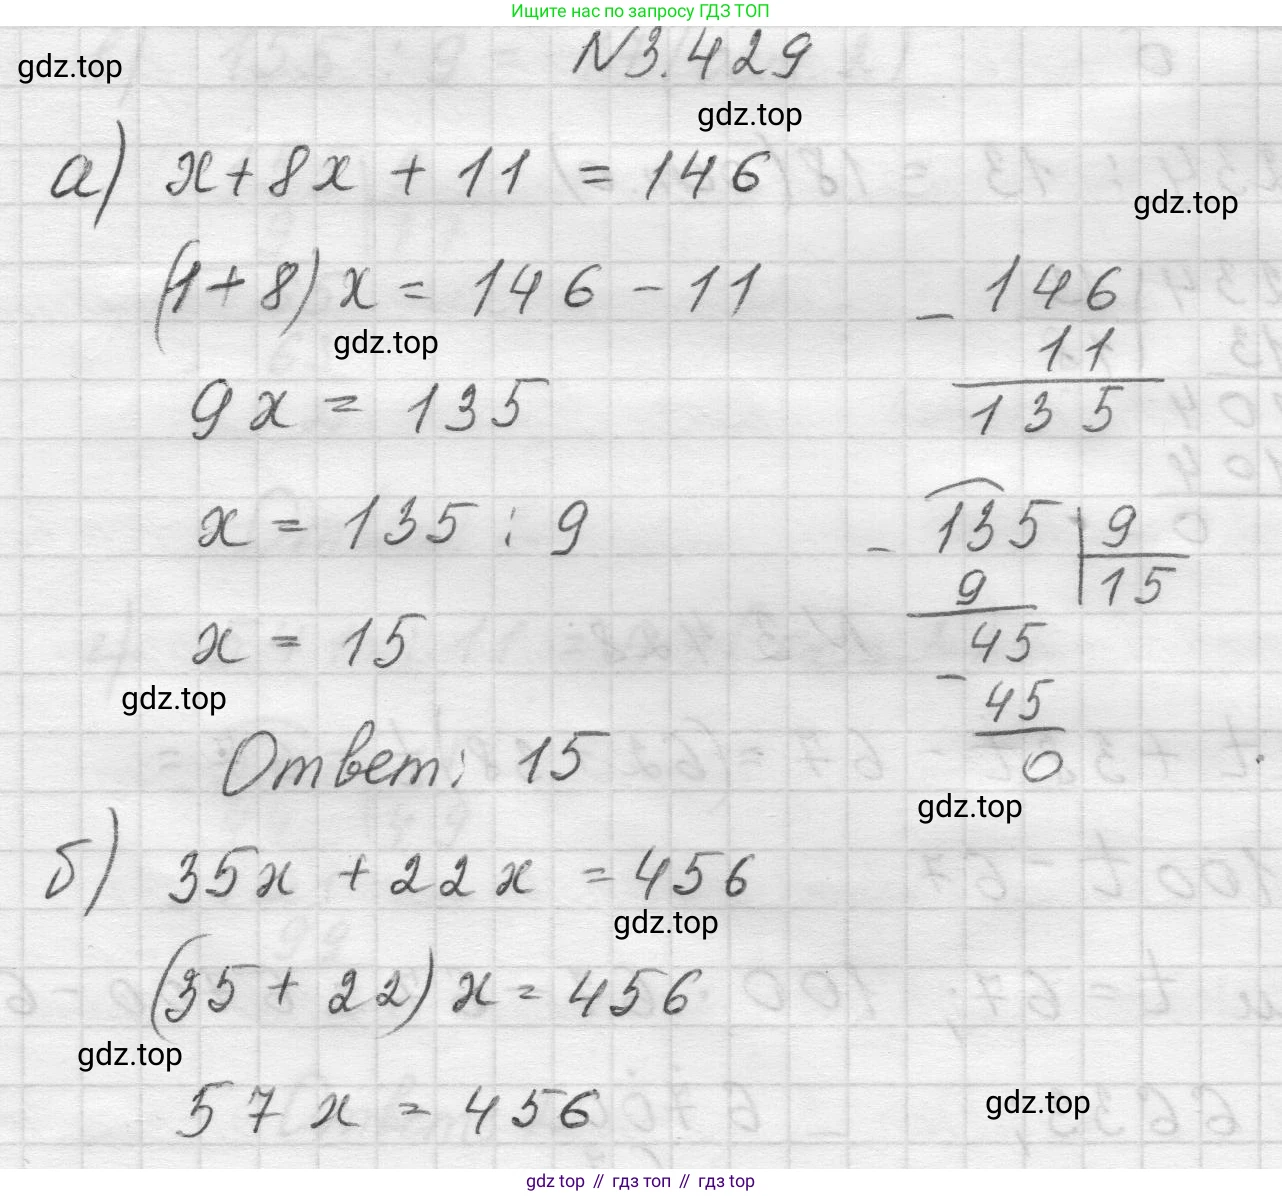 Ищите нас по запросу ГДЗ ТОП
N 3.429
gdz.top
gdz.top
а) x + 8x + 11 = 146
gdz.top
(1 + 8) x = 146 - 11
gdz.top
9x = 135
x = 135 : 9
x = 15
gdz.top
Ответ: 15
- 146
11
135
- 135 | 9
9 | 15
45
- 45
0
gdz.top
б) 35x + 22x = 456
gdz.top
(35 + 22) x = 456
gdz.top
57x = 456
gdz.top
gdz top // гдз топ // гдз top